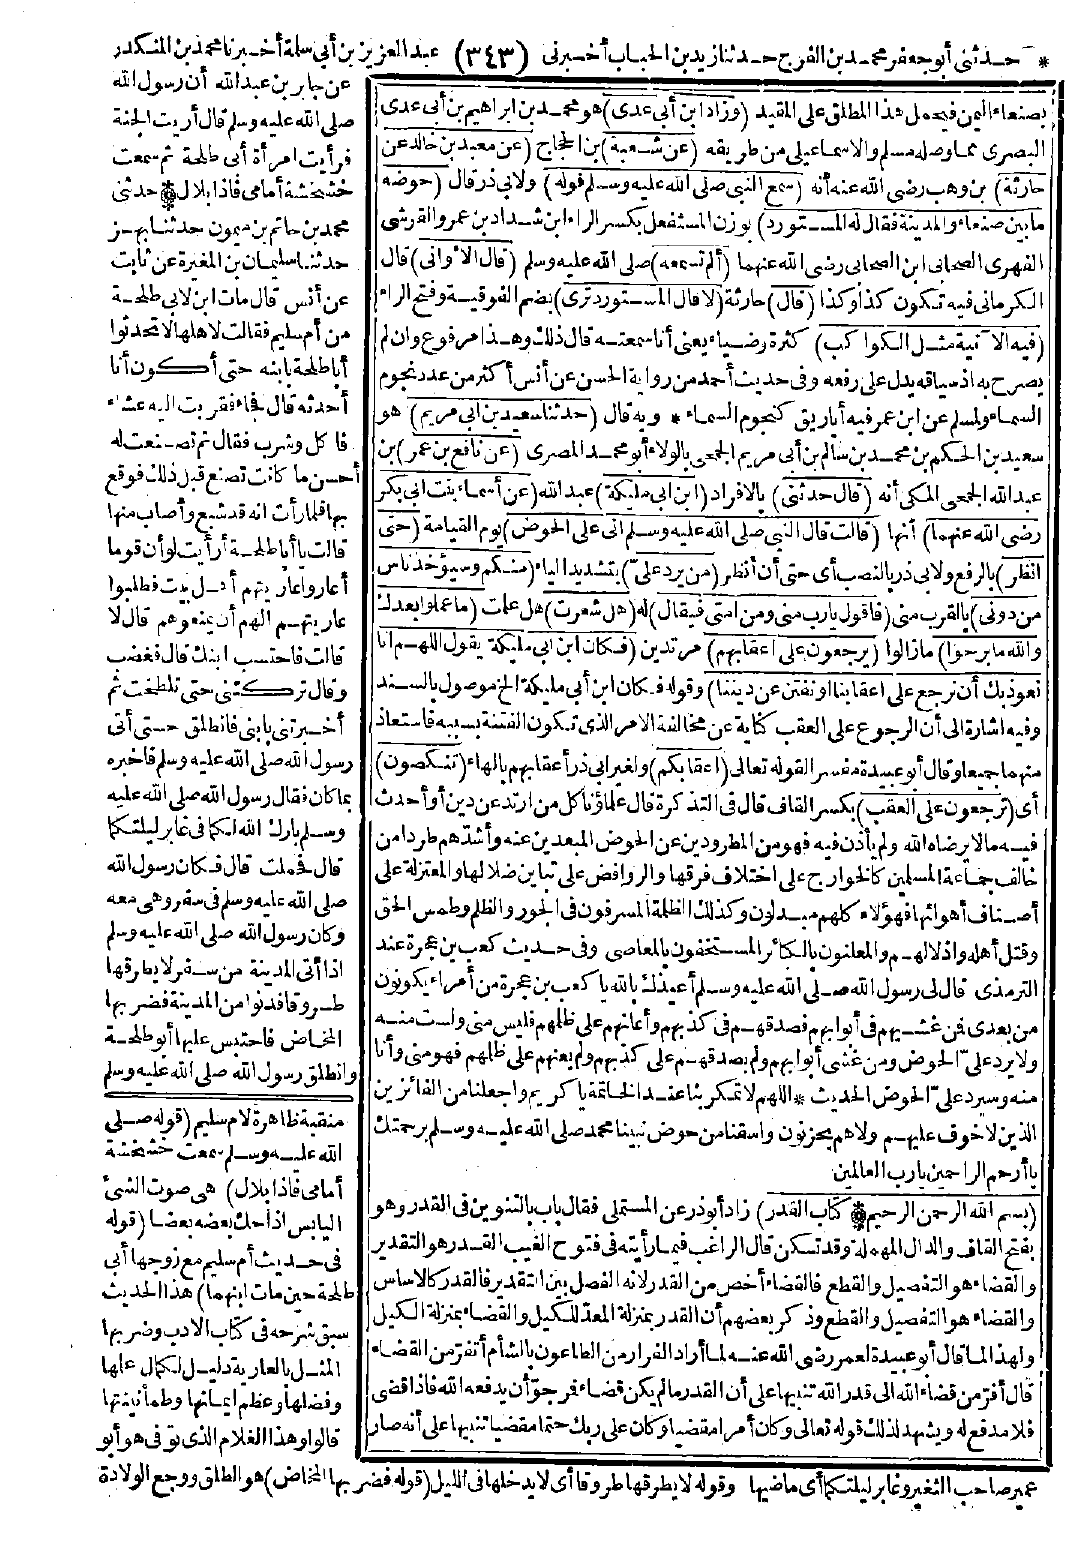 * حدثنى أبو جعفر محمد بن الفرج حدثنا زيد بن الحباب أخبرنى (٣٤٣) عبد العزيز بن أبى سلمة أخبرنا محمد بن المنكدر
بصنعاء اليمن فيحمل هذا المطلق على المقيد (وزاد ابن أبى عدى) هو محمد بن ابراهيم بن أبى عدى
البصرى مما وصله مسلم والاسماعيلى من طريقه (عن شعبة) بن الحجاج (عن معبد بن خالد عن
حارثة) بن وهب رضى الله عنه أنه (سمع النبى صلى الله عليه وسلم قوله) ولابى ذر قال (حوضه
ما بين صنعاء والمدينة فقال له المستورد) بوزن المستفعل بكسر الراء ابن شداد بن عمرو القرشى
الفهرى الصحابى ابن الصحابى رضى الله عنهما (ألم تسمعه) صلى الله عليه وسلم (قال الأوانى) قال
الكرمانى فيه تكون كذا وكذا (قال) حارثة (لا قال المستورد ترى) بضم الفوقية وفتح الراء
(فيه الآنية مثل الكواكب) كثرة وضياء يعنى أنا سمعته قال ذلك وهذا مرفوع وان لم
يصرح به اذ سياقه يدل على رفعه وفى حديث أحمد من رواية الحسن عن أنس أكثر من عدد نجوم
السماء ولمسلم عن ابن عمر فيه أباريق كنجوم السماء * وبه قال (حدثنا سعيد بن ابى مريم) هو
سعيد بن الحكم بن محمد بن سالم بن أبى مريم الجمحى بالولاء أبو محمد المصرى (عن نافع بن عمر) بن
عبد الله الجمحى المكى أنه (قال حدثنى) بالافراد (ابن ابى مليكة) عبد الله (عن أسماء بنت ابى بكر
رضى الله عنهما) أنها (قالت قال النبى صلى الله عليه وسلم انى على الحوض) يوم القيامة (حتى
انظر) بالرفع ولابى ذر بالنصب أى حتى أن أنظر (من يرد علىّ) بتشديد الياء (منكم وسيؤخذ ناس
من دونى) بالقرب منى (فاقول يارب منى ومن امتى فيقال) له (هل شعرت) هل علمت (ما عملوا بعدك
والله ما برحوا) مازالوا (يرجعون على اعقابهم) مرتدين (فكان ابن ابى مليكة يقول اللهم انا
نعوذ بك أن نرجع على اعقابنا او نفتن عن ديننا) وقوله فكان ابن أبى مليكة الخ موصول بالسند
وفيه اشارة الى أن الرجوع على العقب كناية عن مخالفة الامر الذى تكون الفتنة بسببه فاستعاذ
منهما جميعا وقال أبو عبيدة مفسرا لقوله تعالى (اعقابكم) ولغير ابى ذر أعقابهم بالهاء (تنكصون)
أى (ترجعون على العقب) بكسر القاف قال فى التذكرة قال علماؤنا كل من ارتد عن دين أو أحدث
فيه ما لا يرضاه الله ولم يأذن فيه فهو من المطرودين عن الحوض المبعدين عنه وأشدهم طردا من
خالف جماعة المسلمين كالخوارج على اختلاف فرقها والروافض على تباين ضلالها والمعتزلة على
أصناف أهوائها فهؤلاء كلهم مبدلون وكذلك الظلمة المسرفون فى الجور والظلم وطمس الحق
وقتل أهله واذلالهم والمعلنون بالكبائر المستخفون بالمعاصى وفى حديث كعب بن عجرة عند
الترمذى قال لى رسول الله صلى الله عليه وسلم أعيذك بالله يا كعب بن عجرة من أمراء يكونون
من بعدى فمن غشيهم فى أبوابهم فصدقهم فى كذبهم وأعانهم على ظلمهم فليس منى ولست منه
ولا يرد علىّ الحوض ومن غشى أبوابهم ولم يصدقهم على كذبهم ولم يعنهم على ظلمهم فهو منى وأنا
منه وسيرد علىّ الحوض الحديث * اللهم لا تمكر بنا عند الخاتمة يا كريم واجعلنا من الفائزين
الذين لا خوف عليهم ولا هم يحزنون واسقنا من حوض نبينا محمد صلى الله عليه وسلم برحمتك
يا أرحم الراحمين يارب العالمين
(بسم الله الرحمن الرحيم * كتاب القدر) زاد أبو ذر عن المستملى فقال باب بالتنوين فى القدر وهو
بفتح القاف والدال المهملة وقد تسكن قال الراغب فيما رأيته فى فتوح الغيب القدر هو التقدير
والقضاء هو التفصيل والقطع فالقضاء أخص من القدر لانه الفصل بين التقدير فالقدر كالاساس
والقضاء هو التفصيل والقطع وذكر بعضهم أن القدر بمنزلة المعد للكيل والقضاء بمنزلة الكيل
ولهذا لما قال أبو عبيدة لعمر رضى الله عنه لما أراد الفرار من الطاعون بالشأم أتفر من القضاء
قال أفر من قضاء الله الى قدر الله تنبيها على أن القدر ما لم يكن قضاء فمرجوّ أن يدفعه الله فاذا قضى
فلا مدفع له ويشهد لذلك قوله تعالى وكان أمرا مقضيا وكان على ربك حتما مقضيا تنبيها على أنه صار
عن جابر بن عبد الله أن رسول الله
صلى الله عليه وسلم قال أريت الجنة
فرأيت امرأة أبى طلحة ثم سمعت
خشخشة أمامى فاذا بلال * حدثنى
محمد بن حاتم بن ميمون حدثنا بهز
حدثنا سليمان بن المغيرة عن ثابت
عن أنس قال مات ابن لابى طلحة
من أم سليم فقالت لاهلها لا تحدثوا
أبا طلحة بابنه حتى أكون أنا
أحدثه قال فجاء فقربت اليه عشاء
فأكل وشرب فقال ثم تصنعت له
أحسن ما كانت تصنع قبل ذلك فوقع
بها فلما رأت انه قد شبع وأصاب منها
قالت يا أبا طلحة أرأيت لو أن قوما
أعاروا عاريتهم أهل بيت فطلبوا
عاريتهم ألهم أن يمنعوهم قال لا
قالت فاحتسب ابنك قال فغضب
وقال تركتنى حتى تلطخت ثم
أخبرتنى بابنى فانطلق حتى أتى
رسول الله صلى الله عليه وسلم فاخبره
بما كان فقال رسول الله صلى الله عليه
وسلم بارك الله لكما فى غابر ليلتكما
قال فحملت قال فكان رسول الله
صلى الله عليه وسلم فى سفر وهى معه
وكان رسول الله صلى الله عليه وسلم
اذا أتى المدينة من سفر لا يطرقها
طروقا فدنوا من المدينة فضربها
المخاض فاحتبس عليها أبو طلحة
وانطلق رسول الله صلى الله عليه وسلم
منقبة ظاهرة لام سليم (قوله صلى
الله عليه وسلم سمعت خشخشة
أمامى فاذا بلال) هى صوت الشئ
اليابس اذا حك بعضه بعضا (قوله
فى حديث أم سليم مع زوجها أبى
طلحة حين مات ابنهما) هذا الحديث
سبق شرحه فى كتاب الادب وضربها
المثل بالعارية دليل لكمال علمها
وفضلها وعظم ايمانها وطمأنينتها
قالوا وهذا الغلام الذى توفى هو أبو
عمير صاحب النغير وغابر ليلتكما أى ماضيها وقوله لا يطرقها طروقا أى لا يدخلها فى الليل (قوله فضربها المخاض) هو الطلق ووجع الولادة